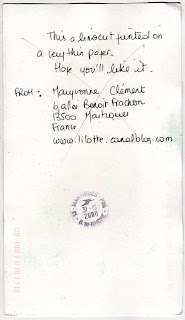 This a linocut printed on
a very thin paper.
Hope you'll like it.
FROM: Maryvonne Clément
6 allée Benoit Frachon
13500 Martigues
France
www.lilotte.canalblog.com